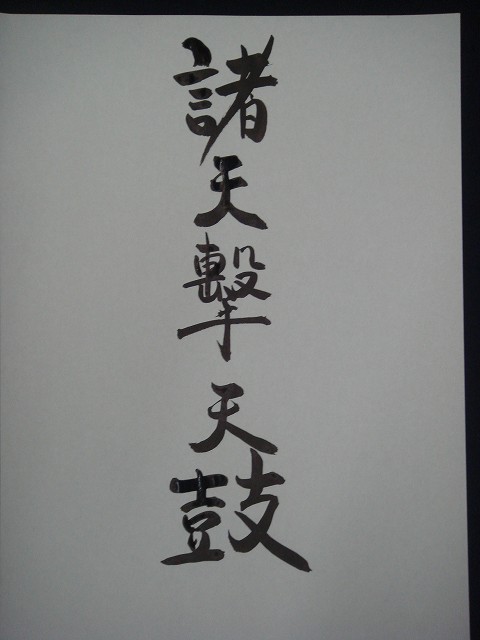 諸天撃天鼓